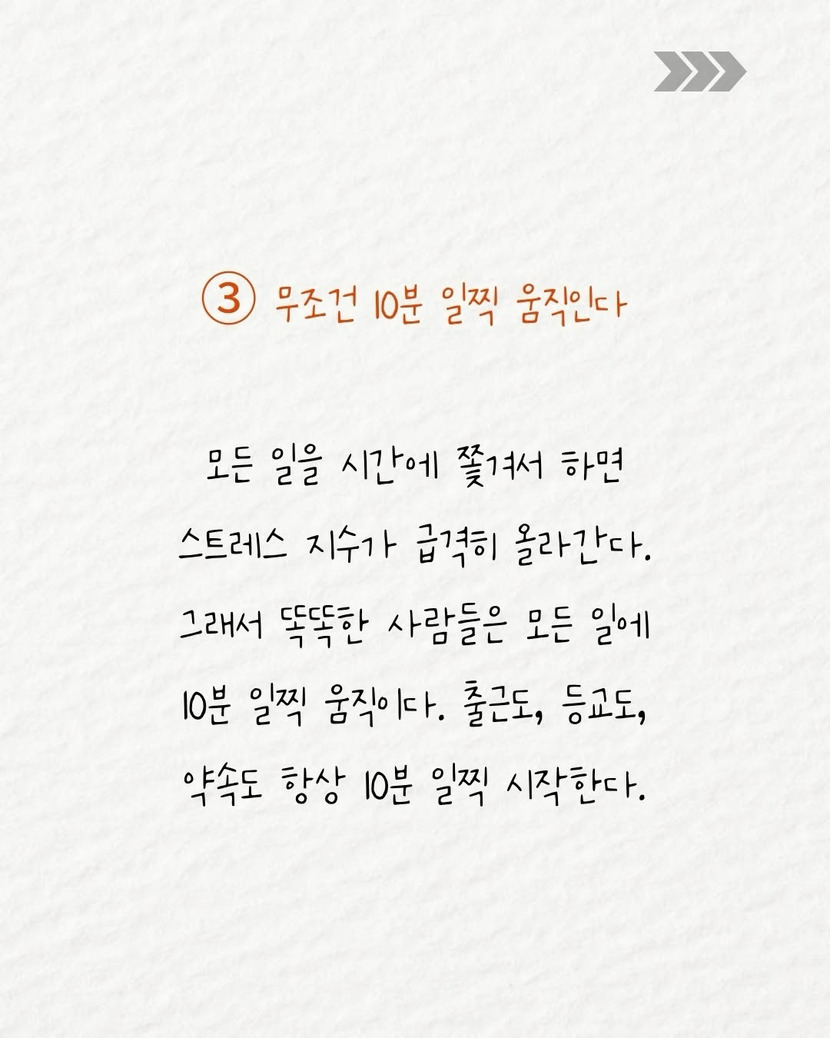 ③ 무조건 10분 일찍 움직인다
모든 일을 시간에 쫓겨서 하면
스트레스 지수가 급격히 올라간다.
그래서 똑똑한 사람들은 모든 일에
10분 일찍 움직이다. 출근도, 등교도,
약속도 항상 10분 일찍 시작한다.